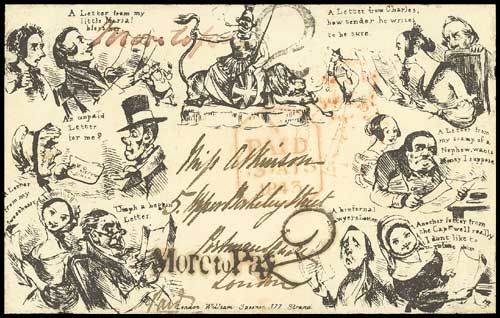 A Letter from my
little Marsa!
blessing
More to pay
2
A Letter from Charles,
how tender he writes
to be sure.
An unpaid
Letter
for me?
PAID
A Letter from
my scamp of a
Nephew, wants
Money I suppose
Miss Atkinson
5 Upper Berkeley Street
Portman
London
Letter
from my
Sweetheart
Umph a begging
Letter.
More to Pay
2
A infernal
Another letter from
the Cap well really
I dont like to
Paid
London William Spooner 377 Strand